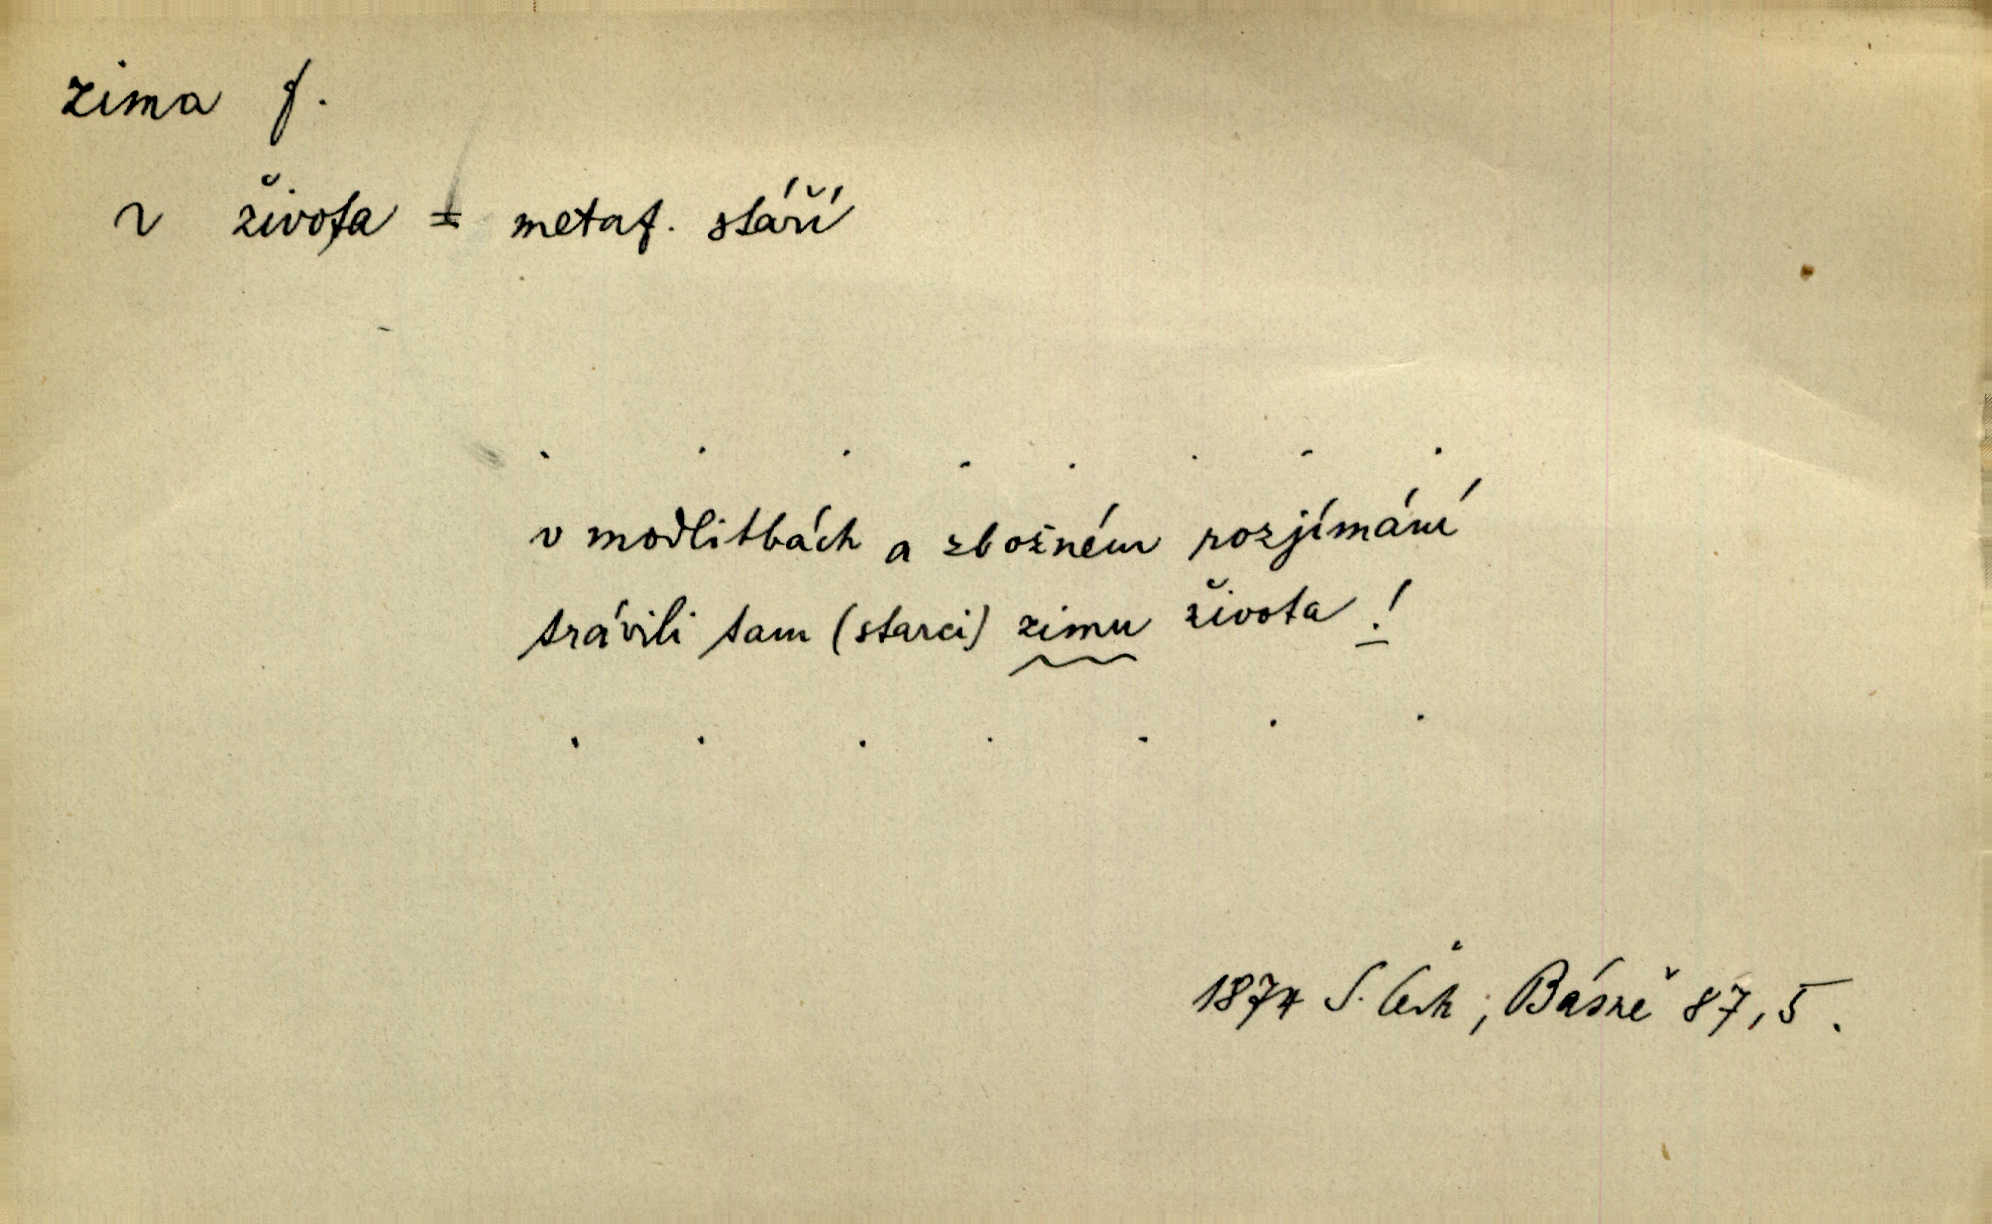 zima f.
~ života = metaf. stáří
. . . . . . . .
v modlitbách a zbožném rozjímání
trávili tam (starci) zimu života!
. . . . . . .
1874 S. Čech; Básně 87,5.